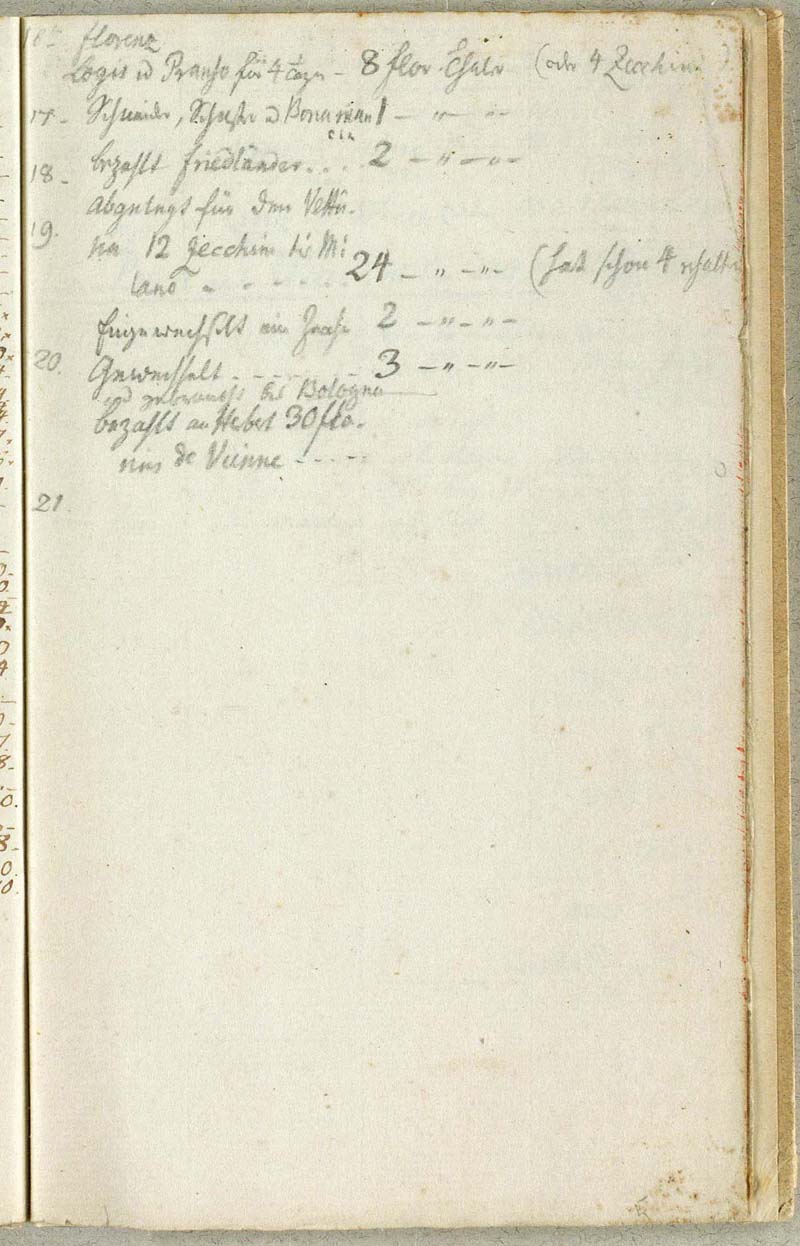 16 - florenz
Logis u Pranso für 4 Tage - 8 flor. Thaler (oder 4 Zecchin.)
17 - Schneider, Schuster u Bonaman 1 - " - " -
cia
18 - bezahlt friedländer . . . 2 - " - " -
abgelegt für den Vettu.
19. na 12 Zecchini bis Mi
lano - - - - - 24 - " - " - (hat schon 4 erhalten
Eingewechselt ein 2 - " - " -
20. Gewechselt - - - - - 3 - " - " -
und gebraucht bis Bologna
bezahlt an Hebert 30 flo.
mys de Vienne - - - - -
21.